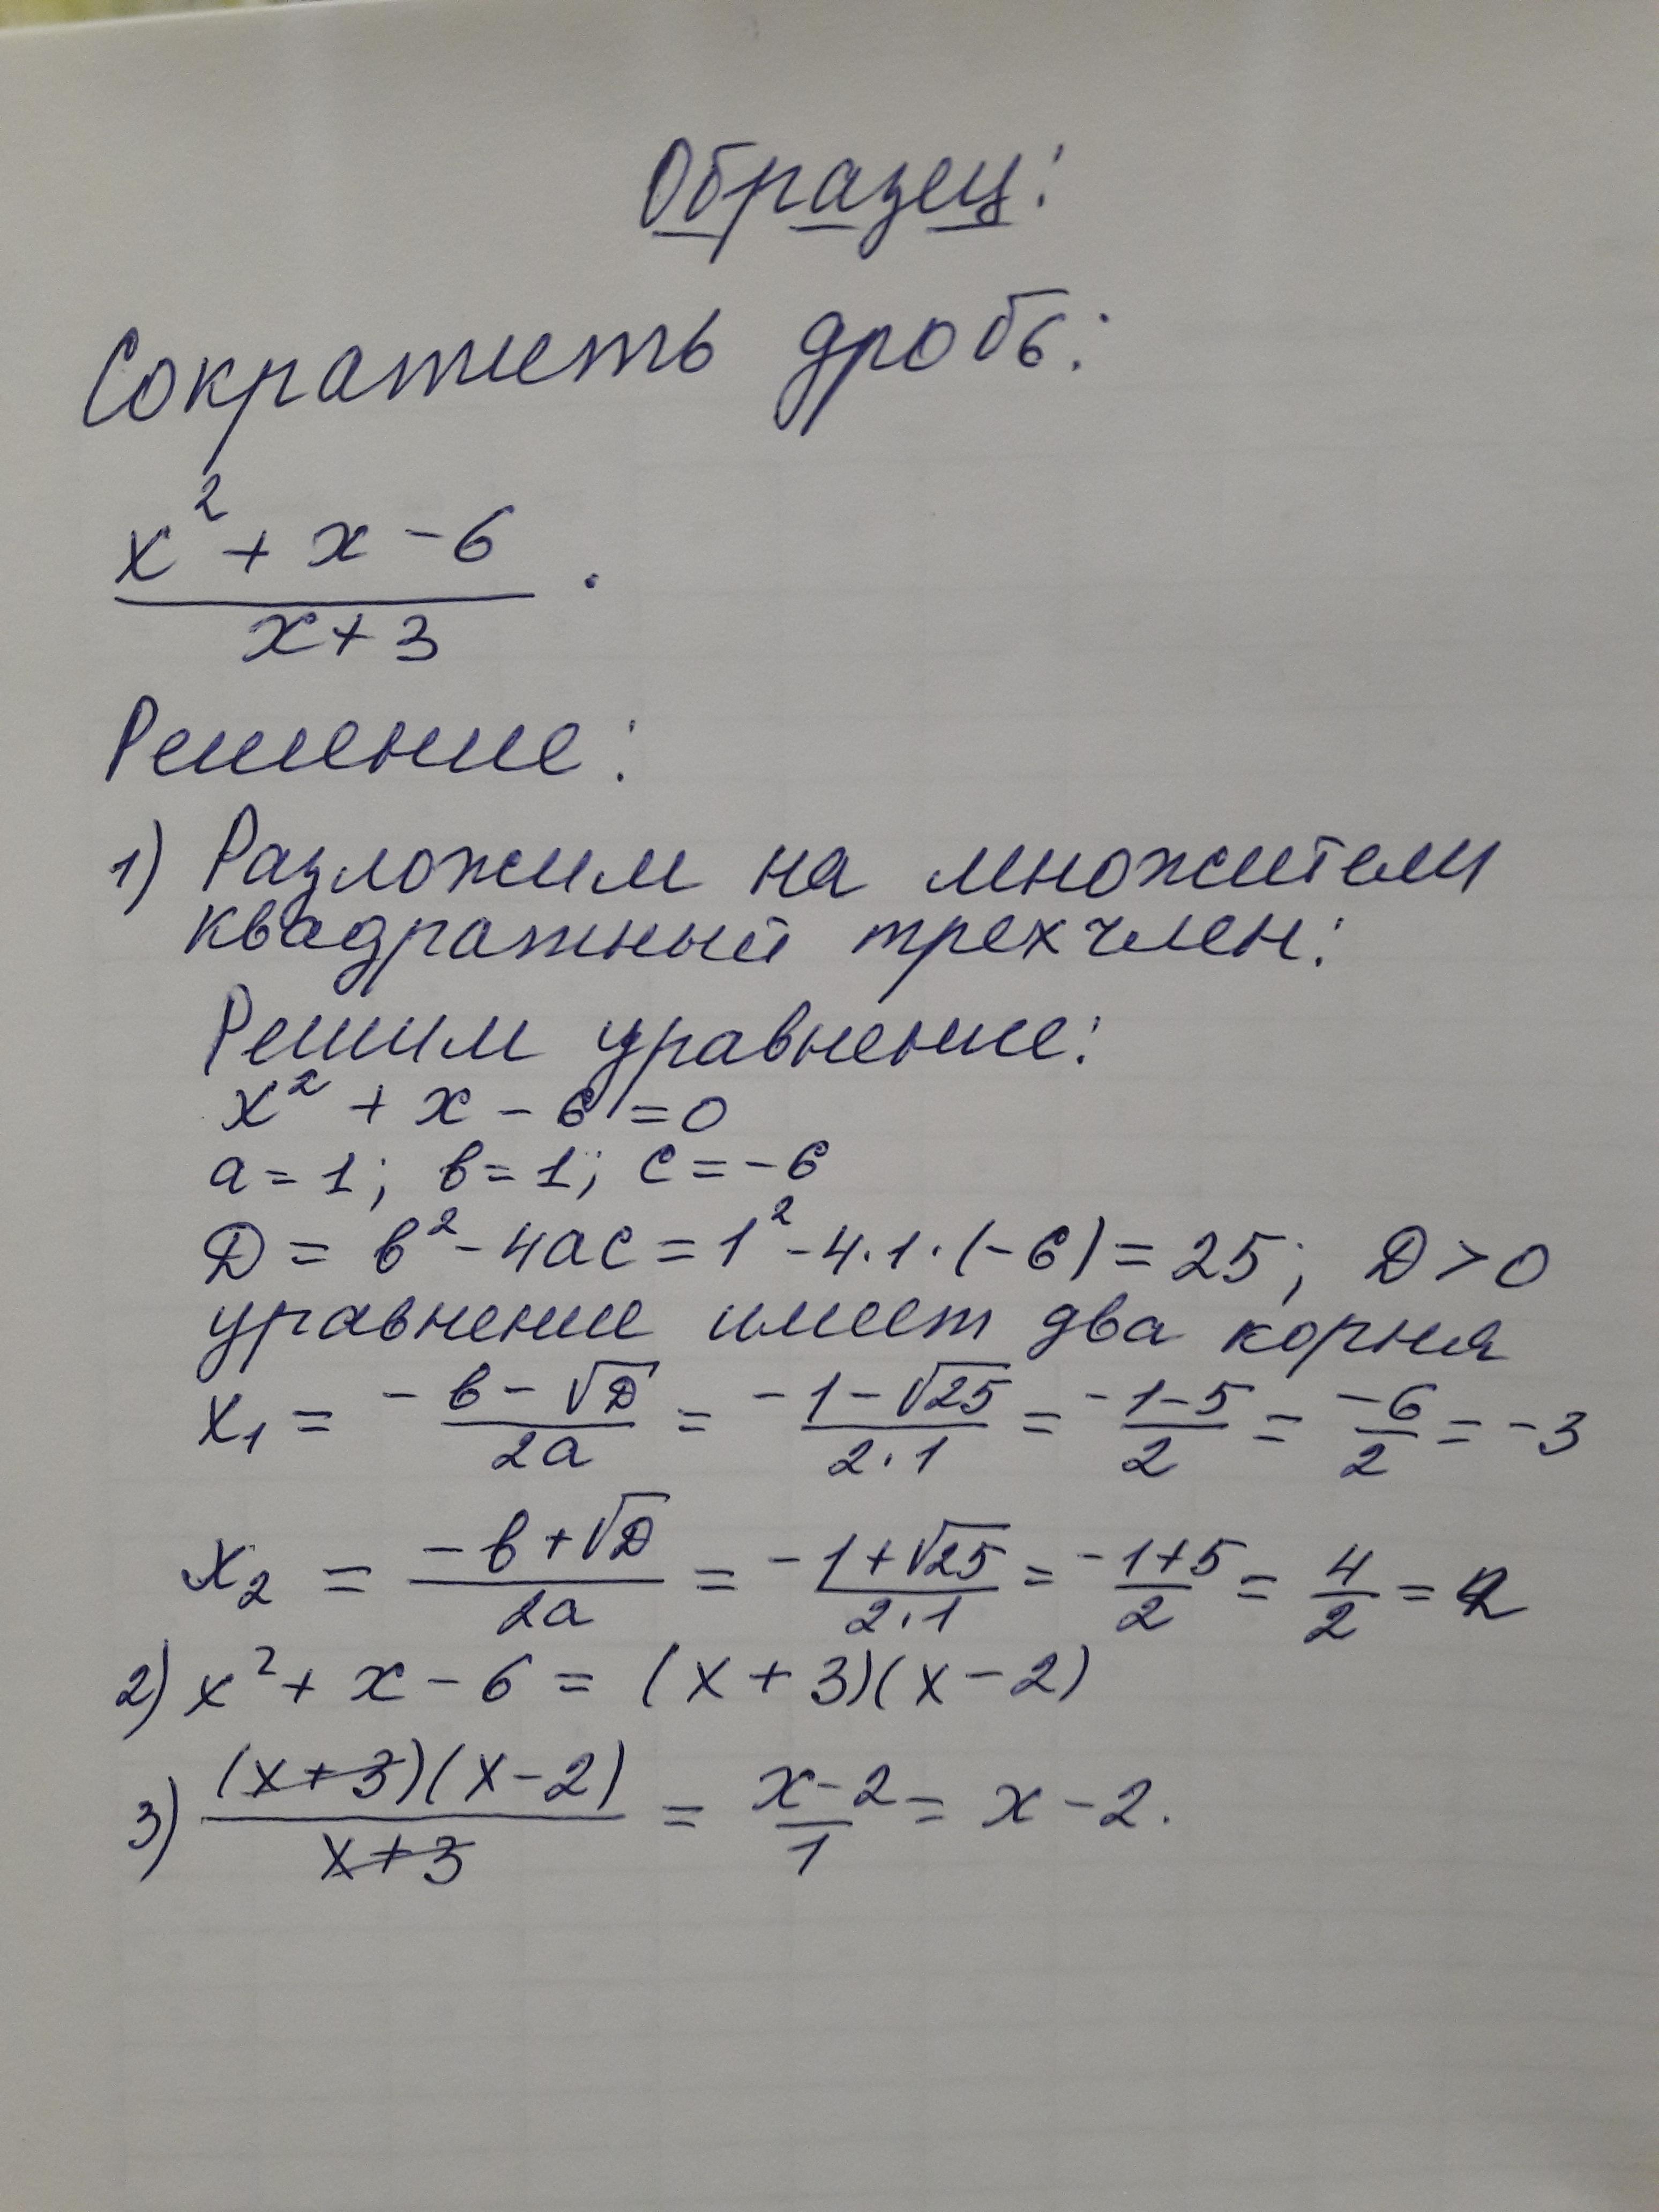 Образец:
Сократить дробь:
x² + x - 6
x + 3 .
Решение:
1) Разложим на множители
квадратный трехчлен:
Решим уравнение:
x² + x - 6 = 0
a = 1; b = 1; c = -6
D = b² - 4ac = 1² - 4·1·(-6) = 25; D > 0
уравнение имеет два корня
x₁ = (-b - √D)/2a = (-1 - √25)/2·1 = (-1-5)/2 = -6/2 = -3
x₂ = (-b + √D)/2a = (-1 + √25)/2·1 = (-1+5)/2 = 4/2 = 2
2) x² + x - 6 = (x + 3)(x - 2)
3) (x+3)(x-2)/(x+3) = (x-2)/1 = x - 2.